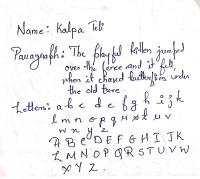 Name: Kalpa Teli
Paragraph: The playful kitten jumped
over the fence and it fell
when it chased butterflies under
the old tree.
Letters: a b c d e f g h i j k
l m n o p q r s t u v
w x y z
A B C D E F G H I J K
L M N O P Q R S T U V W
X Y Z.